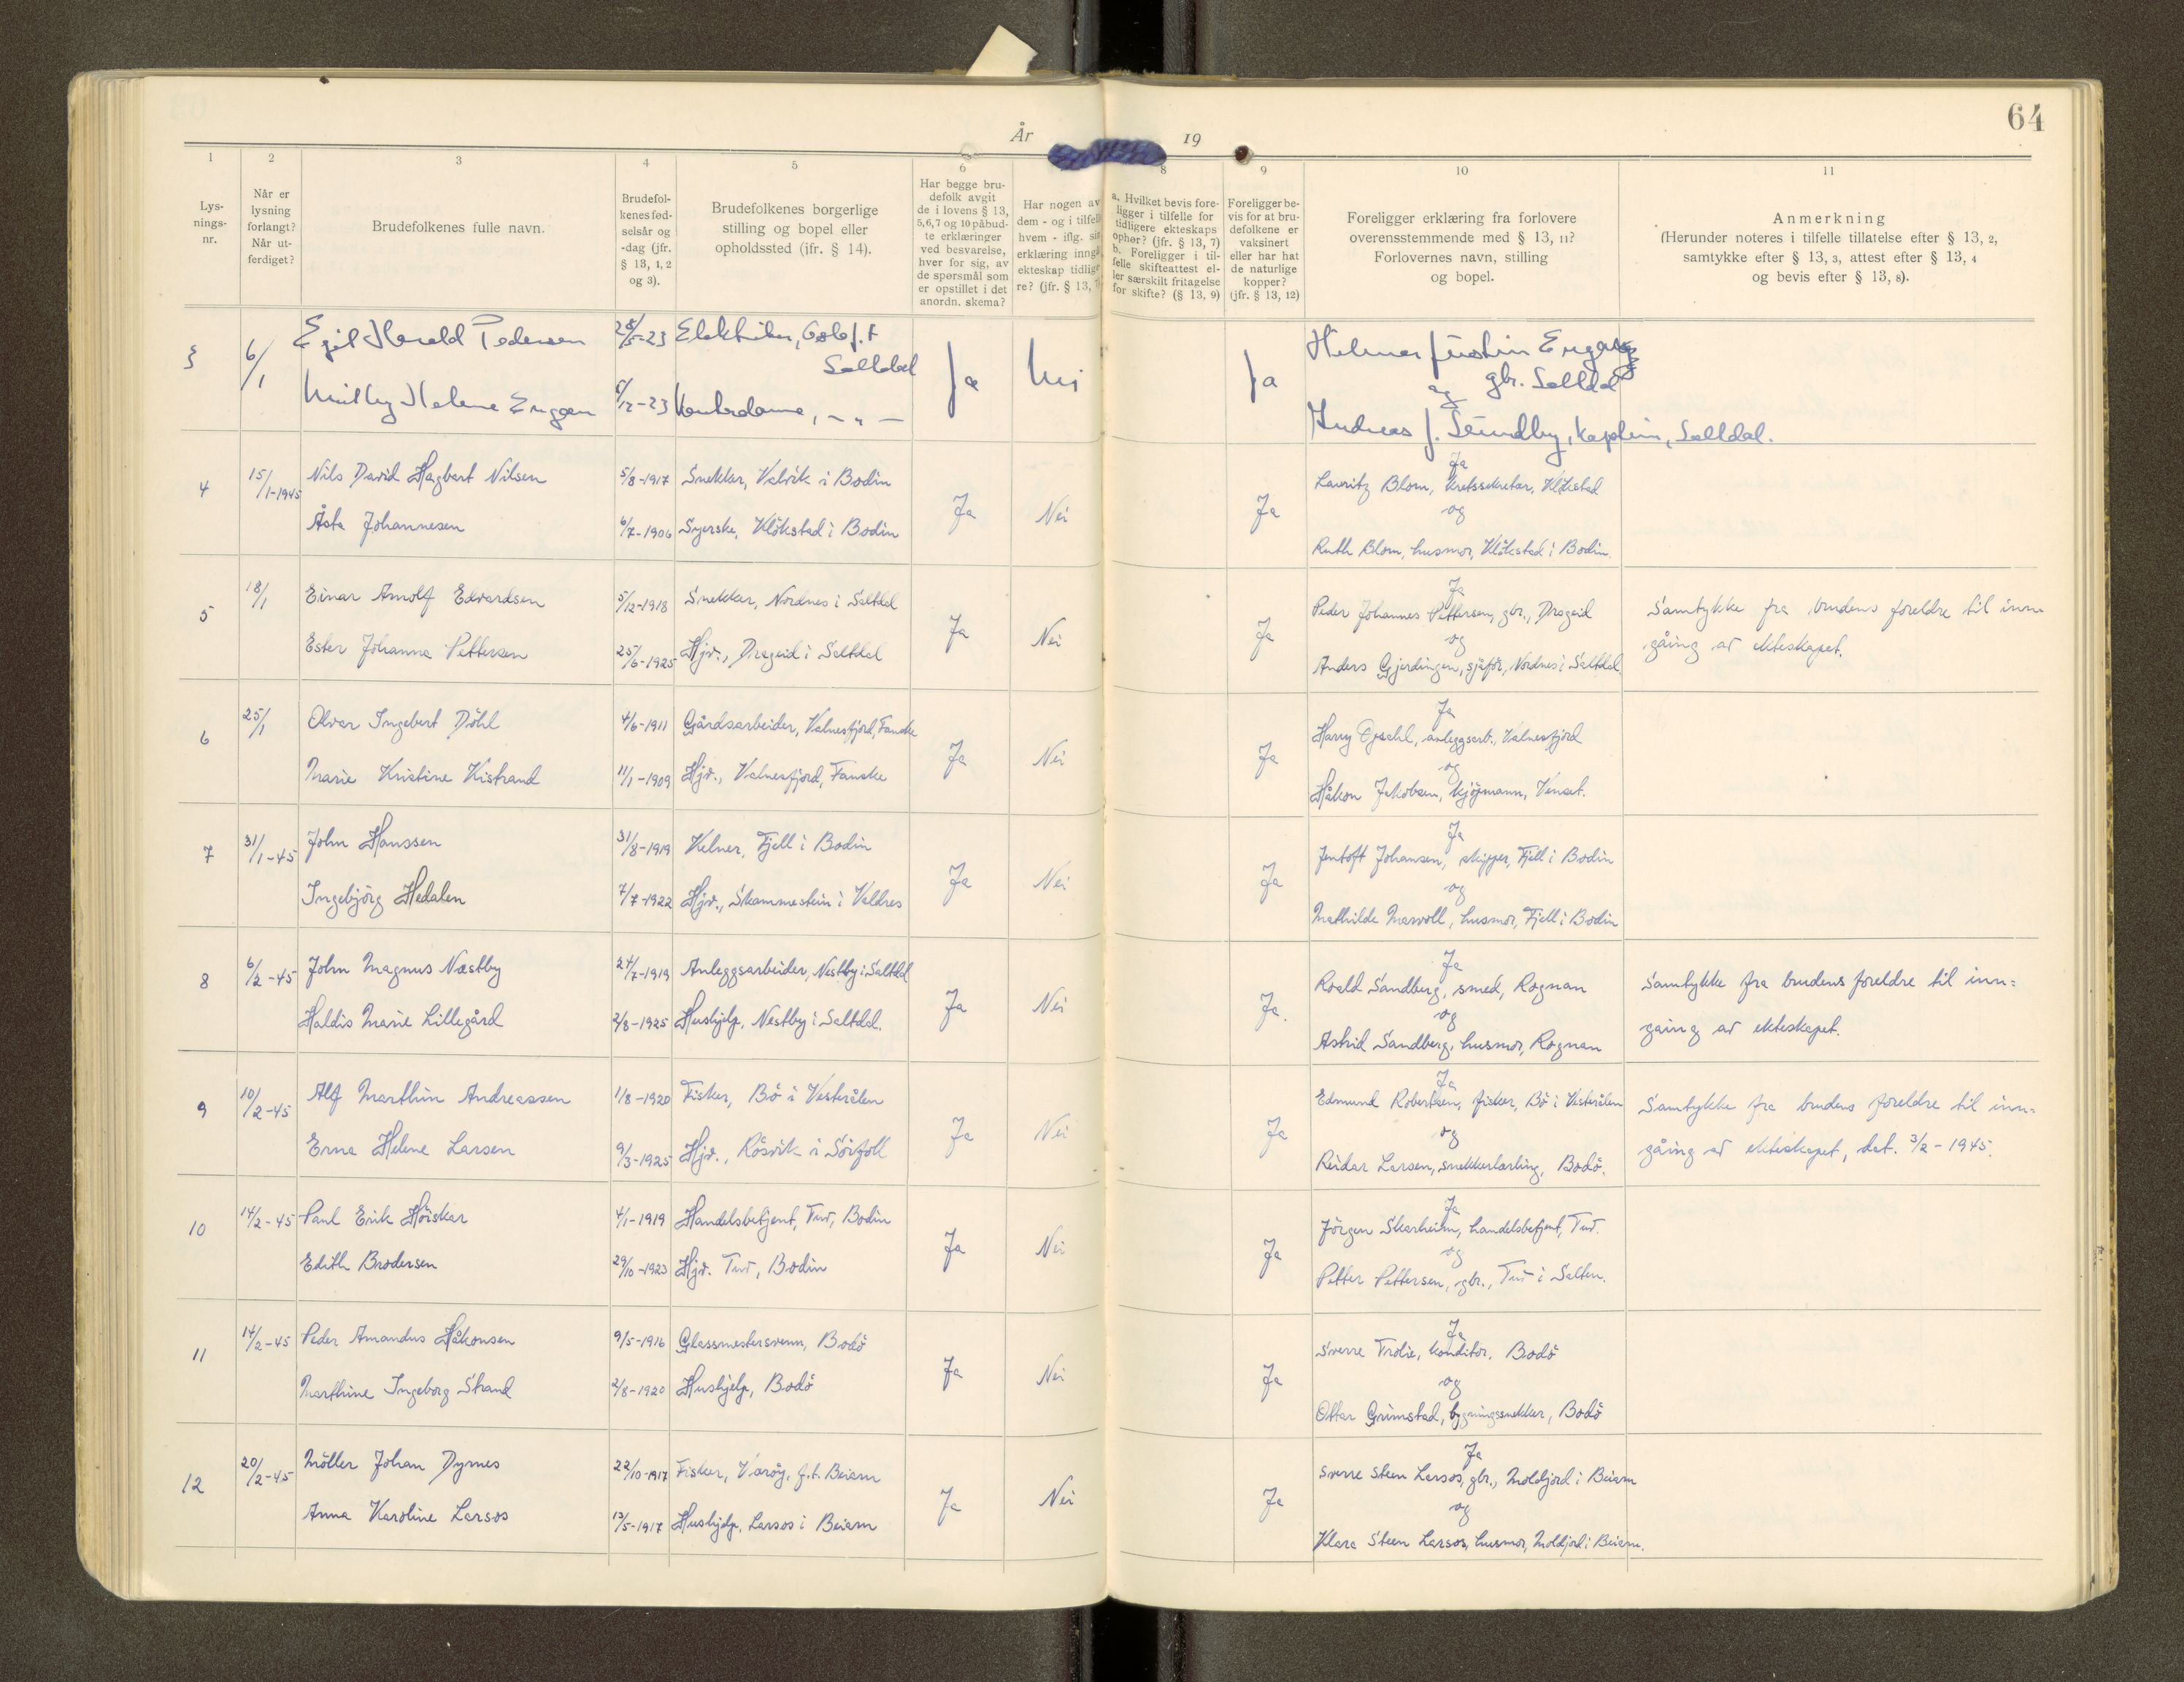 64
År 19
1 2 3 4 5 6 8 9 10 11
Lys-
nings-
nr.
Når er
lysning
forlangt?
Når ut-
ferdiget?
Brudefolkenes fulle navn.
Brudefol-
kenes fød-
selsår og
-dag (jfr.
§ 13, 1, 2
og 3).
Brudefolkenes borgerlige
stilling og bopel eller
opholdssted (ifr. § 14).
Har begge bru-
defolk avgit
de i lovens § 13,
5,6,7 og 10 påbud-
te erklæringer
ved besvarelse,
hver for sig, av
de spørsmål som
er opstillet i det
anordn. skema?
Har nogen av
dem - og i tilfel
hvem - iflg. sin
erklæring inngå
ekteskap tidlige
re? (jfr. § 13, 7
a. Hvilket bevis fore-
ligger i tilfelle for
tidligere ekteskaps
ophør? (jfr. § 13, 7)
b. Foreligger i til-
felle skifteattest el-
ler særskilt fritagelse
for skifte? (§ 13, 9)
Foreligger be-
vis for at bru-
defolkene er
vaksinert
eller har hat
de naturlige
kopper?
(jfr. § 13, 12)
Foreligger erklæring fra forlovere
overensstemmende med § 13, 11?
Forlovernes navn, stilling
og bopel.
Anmerkning
(Herunder noteres i tilfelle tillatelse efter § 13, 2,
samtykke efter § 13, 3, attest efter § 13, 4
og bevis efter § 13, 8).
3 6/1 Egil Harald Pedersen 28/5-23 Elektriker,
Saltdal
Helene Engan /12-23 Kontordame, - " -
Ja Nei Ja
Helmer Justin Engan
gbr. Saltdal
og
Andreas J. Sundby, kaptein, Saltdal.
4 15/1-1945 Nils David Hagbart Nilsen 5/8-1917 Snekker, Valvik i Bodin
Åsta Johannesen 6/7-1906 Syerske, Klökstad i Bodin
Ja Nei Ja
Ja
Lauritz Blom, kretssekretær, Klökstad
og
Ruth Blom, husmor, Klökstad i Bodin.
5 18/1 Einar Arnolf Edvardsen 5/12-1918 Snekker, Nordnes i Saltdal
Ester Johanna Pettersen 25/6-1925 Hjv., Drageid i Saltdal
Ja Nei Ja
Ja
Peder Johannes Pettersen, gbr., Drageid
og
Anders Gjerdingen, sjåför, Nordnes i Saltdal
Samtykke fra brudens foreldre til inn-
gåing av ekteskapet.
6 25/1 Olvar Ingebert Döhl 4/6-1911 Gårdsarbeider, Valnesfjord, Fauske
Marie Kristine Kistrand 11/1-1909 Hjv., Valnesfjord, Fauske
Ja Nei Ja
Ja
Harry anleggsarb., Valnesfjord
og
Håkon Jakobsen, kjöpmann, Venset.
7 31/1-45 John Hanssen 31/8-1919 Kelner, Fjell i Bodin
Ingebjörg Hedalen 7/7-1922 Hjv., Skammestein i Valdres
Ja Nei Ja
Ja
Jentoft Johansen, skipper, Fjell i Bodin
og
Mathilde Marvoll, husmor, Fjell i Bodin
8 6/2-45 John Magnus Næstby 24/7-1919 Anleggsarbeider, Nestby i Saltdal
Haldis Marie Lillegård 2/8-1925 Hushjelp, Nestby i Saltdal.
Ja Nei Ja.
Ja
Roald Sandberg, smed, Rognan
og
Astrid Sandberg, husmor, Rognan
Samtykke fra brudens foreldre til inn=
gåing av ekteskapet.
9 10/2-45 Alf Marthin Andreassen 1/8-1920 Fisker, Bö i Vesterålen
Erna Helene Larsen 9/3-1925 Hjv., Rösvik i Sörfoll
Ja Nei Ja
Ja
Edmund Robertsen, fisker, Bö i Vesterålen
og
Reidar Larsen, snekkerlærling, Bodö.
Samtykke fra brudens foreldre til inn=
gåing av ekteskapet, dat. 3/2-1945.
10 14/2-45 Paul Erik Höiskar 4/1-1919 Handelsbetjent, Tuv, Bodin
Edith Brodersen 29/10-1923 Hjv. Tuv, Bodin
Ja Nei Ja
Ja
Jörgen Skarheim, handelsbetjent, Tuv.
og
Petter Pettersen, gbr., Tuv i Salten.
11 14/2-45 Peder Amandus Håkonsen 9/5-1916 Glassmestersvenn, Bodö
Marthine Ingeborg Strand 2/8-1920 Hushjelp, Bodö
Ja Nei Ja
Ja
Sverre Trolie, konditor, Bodö
og
Ottar Grimstad, bygningssnekker, Bodö
12 20/2-45 Möller Johan Dyrnes 22/10-1917 Fisker, Væröy, f.t. Beiarn
Anna Karoline Larsos 13/5-1917 Hushjelp, Larsos i Beiarn
Ja Nei Ja
Ja
Sverre Steen Larsos, gbr., Moldjord i Beiarn
og
Klara Steen Larsos, husmor, Moldjord i Beiarn.